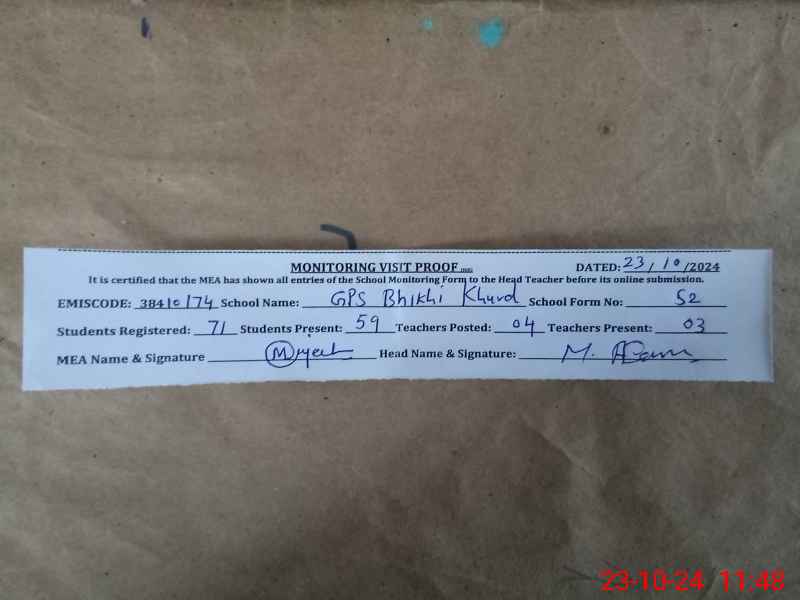 MONITORING VISIT PROOF DATED: 23/10/2024
It is certified that the MEA has shown all entries of the School Monitoring Form to the Head Teacher before its online submission.
EMISCODE: 38410174 School Name: GPS Bhikhi Khurd School Form No: 52
Students Registered: 71 Students Present: 59 Teachers Posted: 04 Teachers Present: 03
MEA Name & Signature Head Name & Signature: M.
23-10-24 11:48